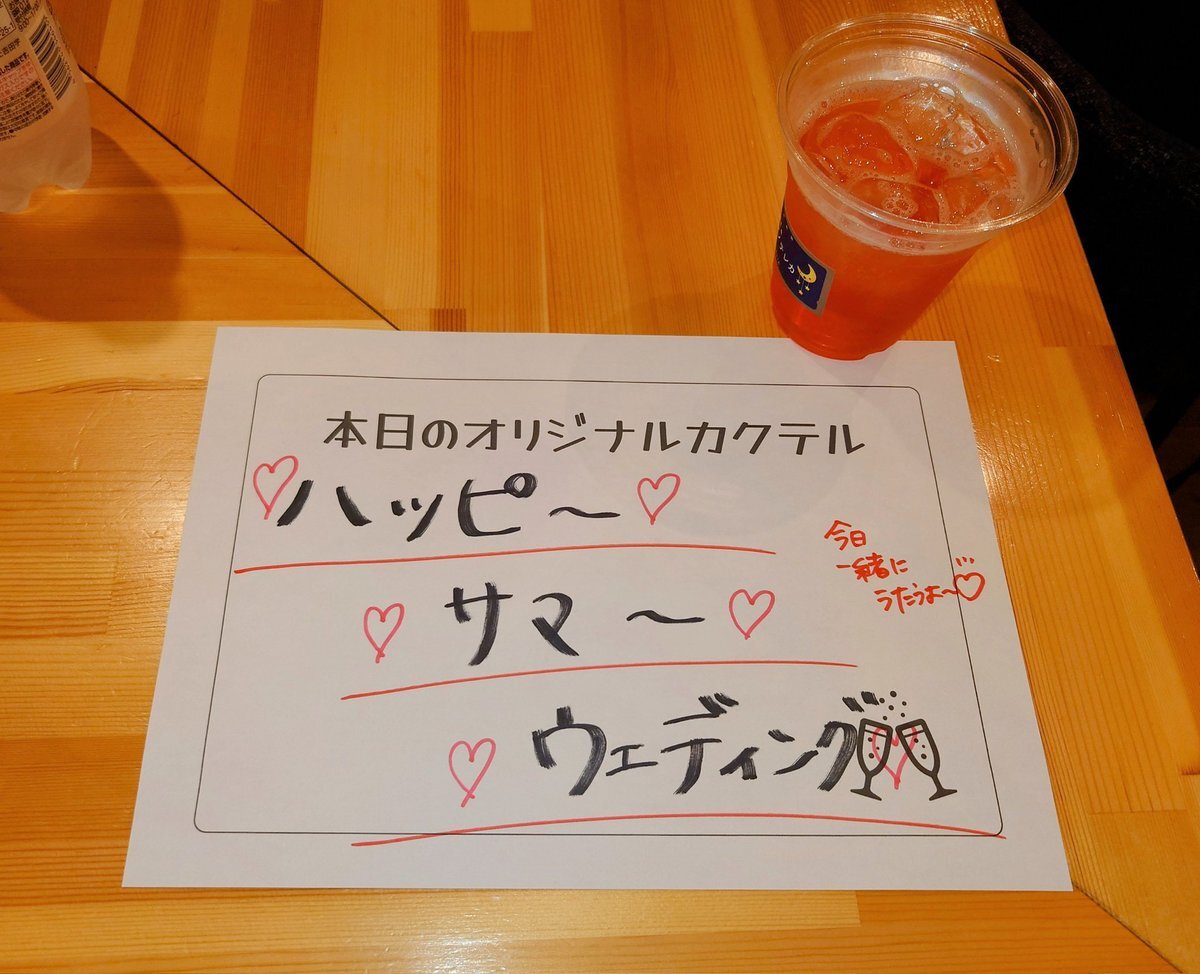 本日のオリジナルカクテル
ハッピ〜
サマ〜
ウェディング
今日
一緒に
うたうよ〜